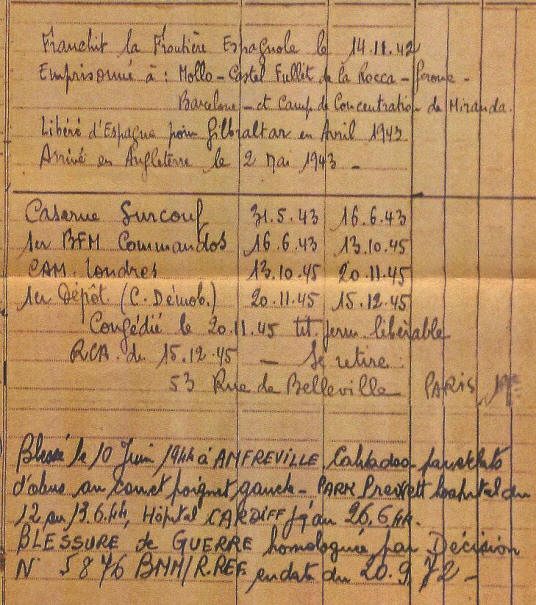 Franchit la Frontière Espagnole le 14.11.42
Emprisonné à : Mollo - Castel Fullit de la Rocca - Gerone -
Barcelone - et Camp de Concentration de Miranda.
Libéré d'Espagne pour Gilbraltar en Avril 1943
Arrivé en Angleterre le 2 Mai 1943 -
Caserne Surcouf 31.5.43 16.6.43
1er BFM Commandos 16.6.43 13.10.45
CAM. Londres 13.10.45 20.11.45
1er Dépôt (C. Démob.) 20.11.45 15.12.45
Congédié le 20.11.45 tit. libérable
RCA. du 15.12.45 - Se retire :
53 Rue de Belleville PARIS
Blessé le 10 Juin 1944 à AMFREVILLE Calvados par éclats
d'obus au et poignet gauche - PARK Prewett hospital du
12 au 13.6.44, Hôpital CARDIFF jq'au 26.6.44.
BLESSURE de GUERRE homologuée par Décision
N° 5876 BMM/R.PEF en date du 20.9.72 -